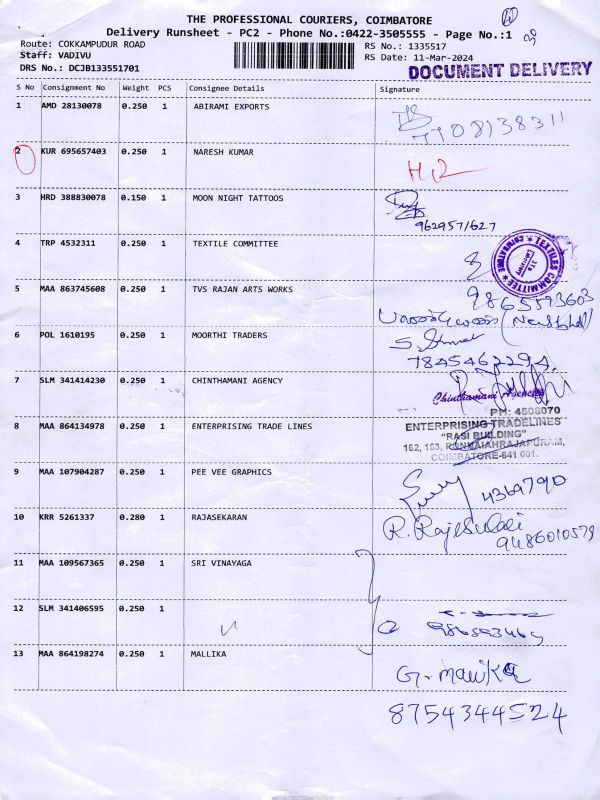 THE PROFESSIONAL COURIERS, COIMBATORE
Delivery Runsheet - PC2 - Phone No.:0422-3505555 - Page No.:1
Route: COKKAMPUDUR ROAD
RS No.: 1335517
Staff: VADIVU
RS Date: 11-Mar-2024
DRS No.: DCJB133551701
DOCUMENT DELIVERY
S No Consignment No Weight PCS Consignee Details Signature
1 AMD 28130078 0.250 1 ABIRAMI EXPORTS
2 KUR 695657403 0.250 1 NARESH KUMAR
3 HRD 388830078 0.150 1 MOON NIGHT TATTOOS
962957/627
4 TRP 4532311 0.250 1 TEXTILE COMMITTEE
TEXTILES COMMITTEE * COIMBATORE *
5 MAA 863745608 0.250 1 TVS RAJAN ARTS WORKS
9865593603
6 POL 1610195 0.250 1 MOORTHI TRADERS
7845462294
7 SLM 341414230 0.250 1 CHINTHAMANI AGENCY
Chinthamani Agencies
PH: 4508070
8 MAA 864134978 0.250 1 ENTERPRISING TRADE LINES
ENTERPRISING TRADELINES
"RASI BUILDING"
162, 163, PONNAIAHRAJAPURAM,
COIMBATORE-641 001.
9 MAA 107904287 0.250 1 PEE VEE GRAPHICS
4369790
10 KRR 5261337 0.280 1 RAJASEKARAN
9486010579
11 MAA 109567365 0.250 1 SRI VINAYAGA
12 SLM 341406595 0.250 1
13 MAA 864198274 0.250 1 MALLIKA
G. mallika
8754344524